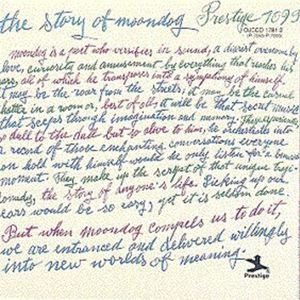 the story of moondog Prestige 7099
OJCCD 1741-2
(P-7099)
Moondog is a poet who versifies in sound, a diarist overcome by
love, curiosity and amusement by everything that reaches his
ears all of which he transposes into a symphony of himself.
it may be the roar from the streets, it may be the casual
in a woman, best of all, it will be that secret music
that seeps through imagination and memory. These experiences
so dull to the dull but so alive to him, he orchestrates into
a record of those enchanting conversations everyone
on hold with himself would he only listen for a
moment. They make up the script of that unique
the story of anyone's life. Picking up our
ears would be so easy; yet it is seldom done.
But when moondog compels us to do it,
we are entranced and delivered willingly
into new worlds of meaning.
Prestige